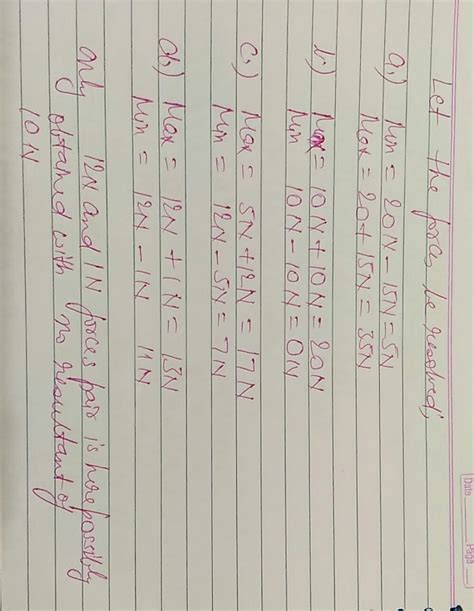 Date
Page
Let the forces be resolved;
a.) Min = 20N - 15N = 5N
Max = 20 + 15N = 35N
b.) Max = 10N + 10N = 20N
Min 10N - 10N = 0N
c.) Max = 5N + 12N = 17N
Min = 12N - 5N = 7N
d.) Max = 12N + 1N = 13N
Min = 12N - 1N 11N
12N and 1N forces pair is here possibly
only obtained with no resultant of
10N